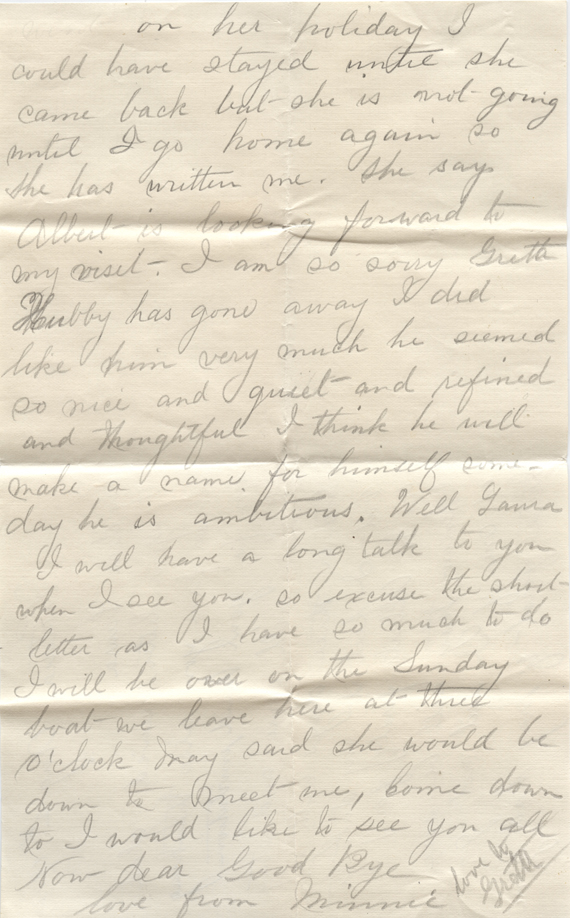 on her holiday I
could have stayed until she
came back but she is not going
until I go home again so
she has written me. She says
Albert is looking forward to
my visit. I am so sorry Gretta
Hubby has gone away I did
like him very much he seemed
so nice and quiet and refined
and thoughtful I think he will
make a name for himself some-
day he is ambitious. Well Laura
I will have a long talk to you
when I see you. so excuse the short
letter as I have so much to do
I will be over on the Sunday
boat we leave here at three
o'clock May said she would be
down to meet me, Come down
to I would like to see you all
Now dear Good Bye
love from Minnie
love to
Gretta